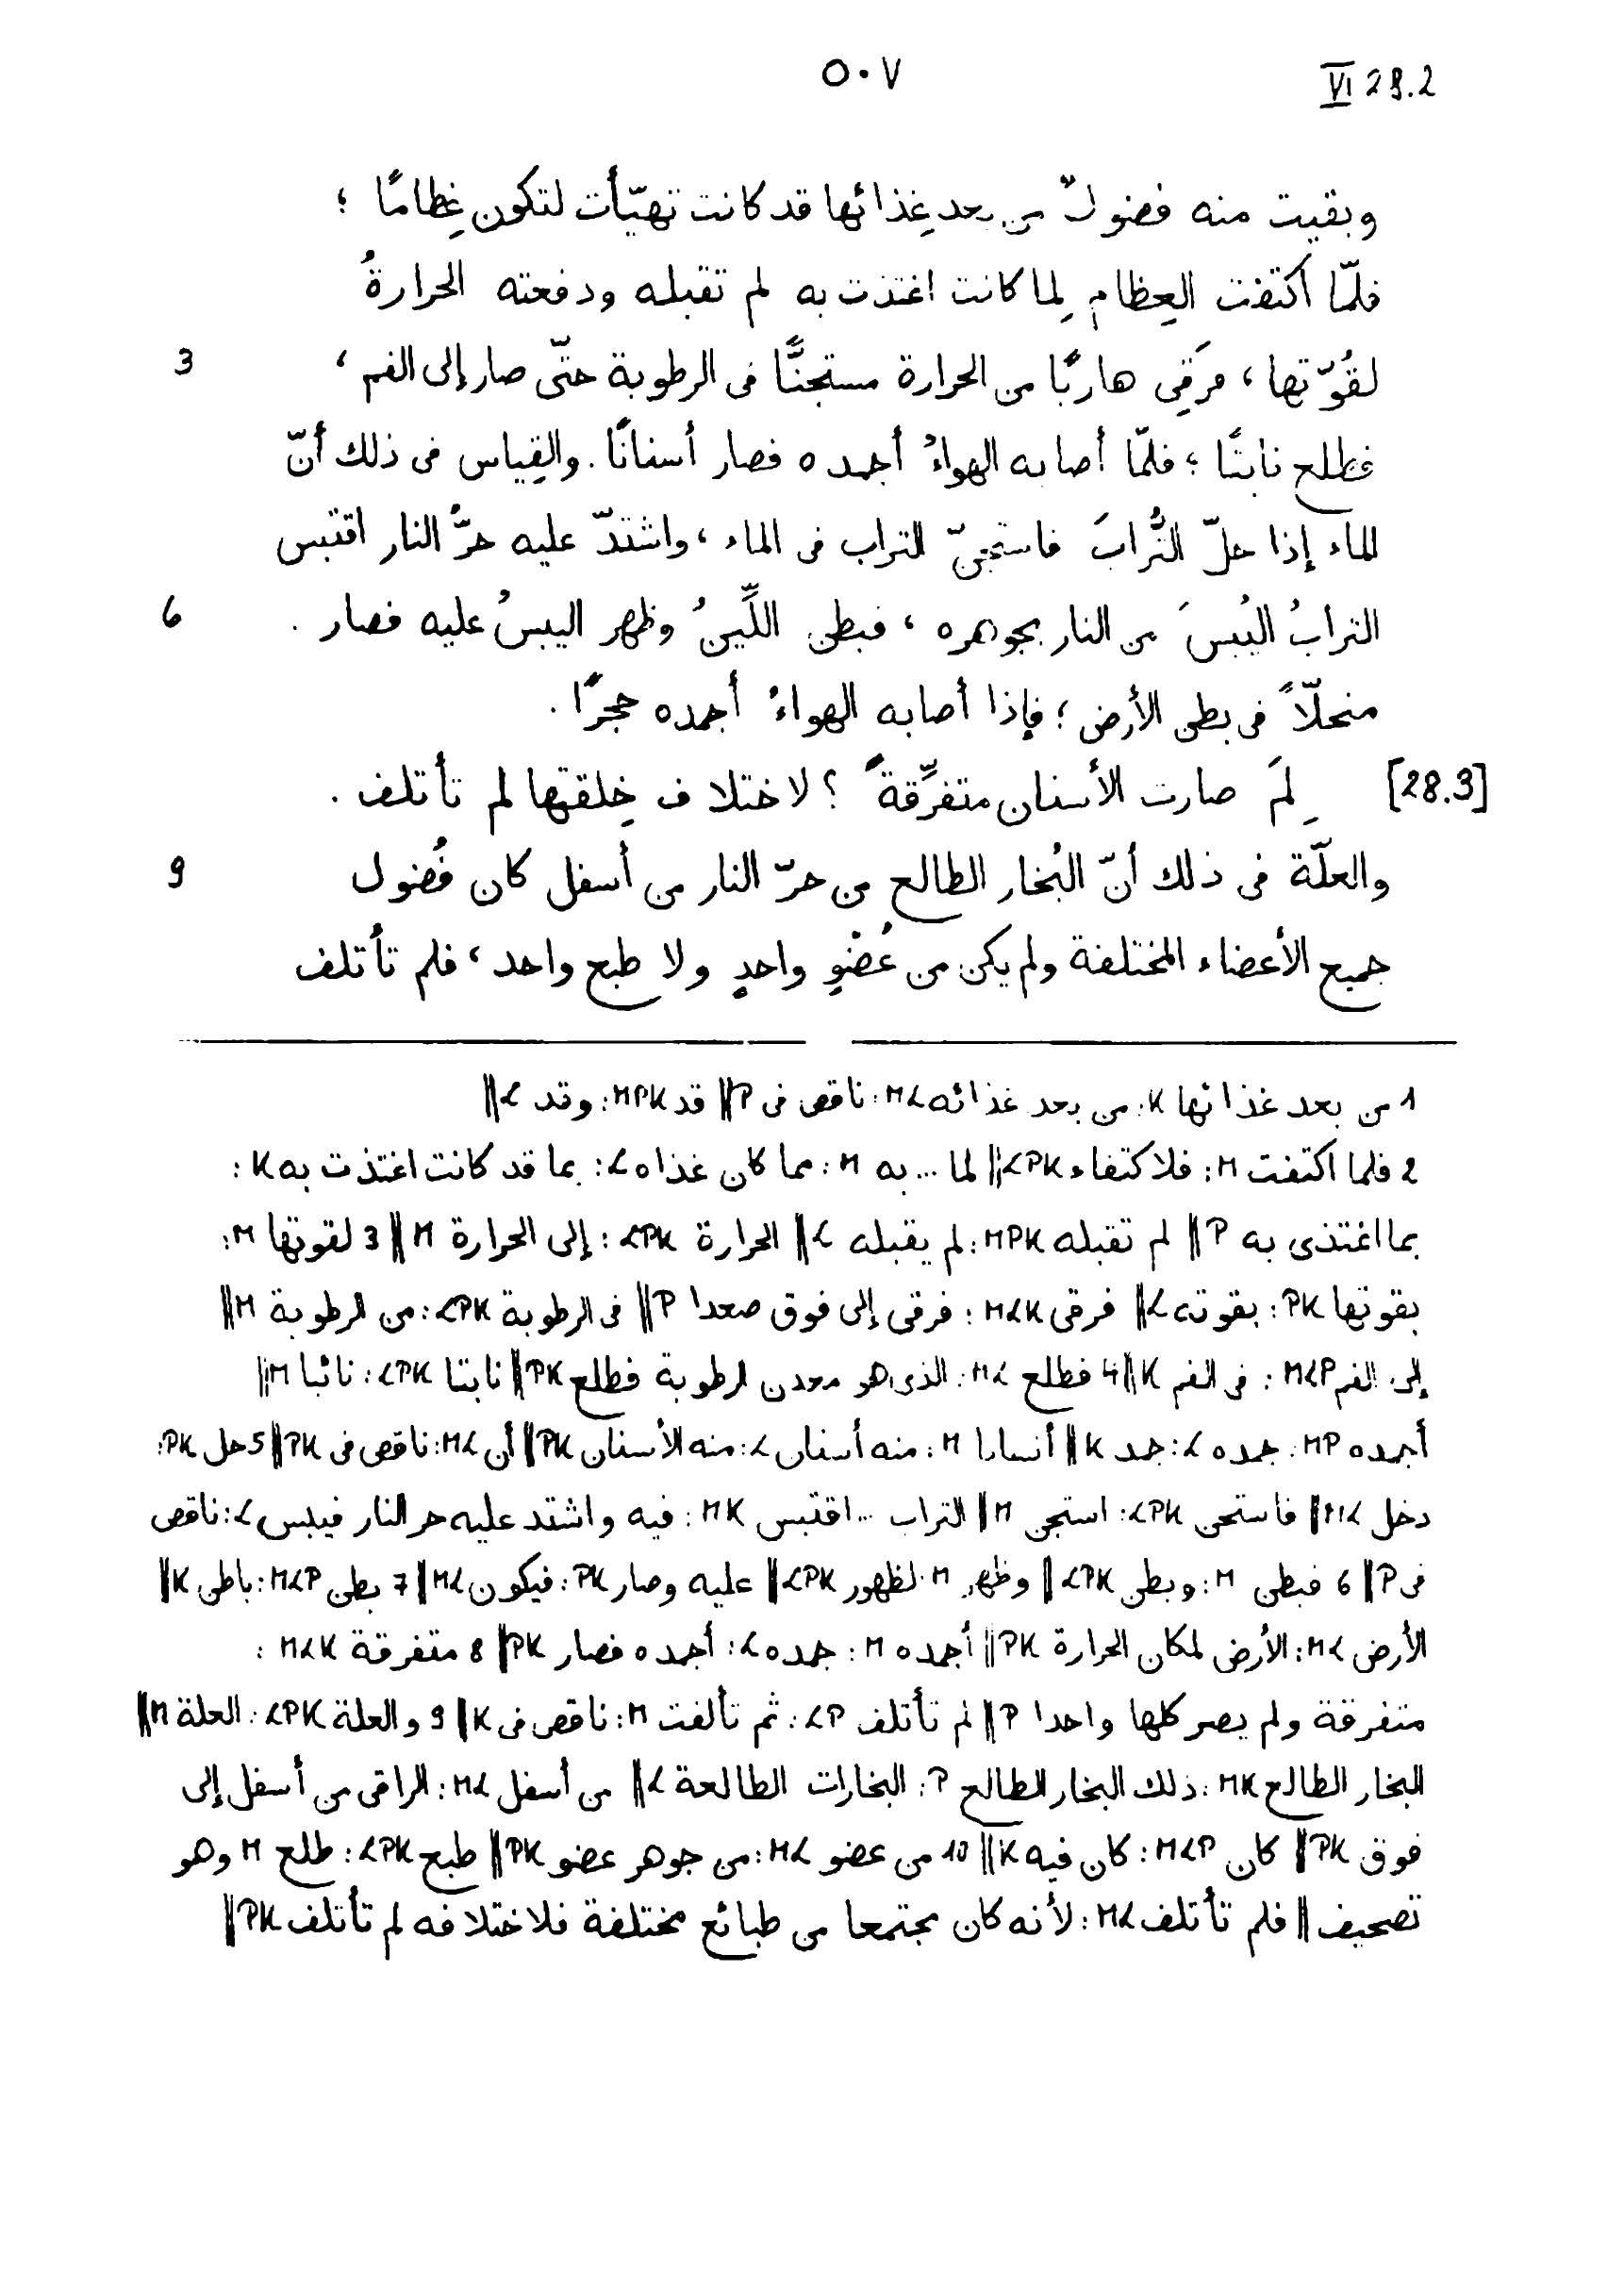 ٥٠٧
VI 28.2
وبقيت منه فضولٌ من بعد غِذائها قد كانت تهيّأت لتكون عِظامًا ؛
فلمّا اكتفت العِظام لِما كانت اغتذت به لم تقبله ودفعته الحرارةُ
3 لقُوّتها ، فرَقِي هاربًا من الحرارة مستجنًّا فى الرطوبة حتّى صار إلى الفم ،
فطلع نابتًا ؛ فلمّا أصابه الهواءُ أجمده فصار أسنانًا . والقِياس فى ذلك أنّ
الماء إذا حلّ التُّرابَ فاستجنّ التراب فى الماء ، واشتدّ عليه حرُّ النار اقتبس
6 الترابُ اليُبسَ من النار بجوهره ، فبطن اللِّينُ وظهر اليبسُ عليه فصار .
منحلّاً فى بطن الأرض ؛ فإذا أصابه الهواءُ أجمده حجرًا .
[28.3] لِمَ صارت الأسنان متفرِّقةً ؟ لاختلاف خِلقتها لم تأتلف .
9 والعلّة فى ذلك أنّ البُخار الطالع من حرّ النار من أسفل كان فُضول
جميع الأعضاء المختلفة ولم يكن من عُضْوٍ واحدٍ ولا طبع واحد ، فلم تأتلف
1 من بعد غذائها K : من بعد غذائه ML : ناقص فى P || قد MPK : وقد L ||
2 فلما اكتفت M : فلاكتفاء LPK || لما ... به M : مما كان غذاه L : بما قد كانت اغتذت به K :
بما اغتذى به P || لم تقبله MPK : لم يقبله L || الحرارة LPK : إلى الحرارة M || 3 لقوتها M :
بقوتها PK : بقوته L || فرقى MLK : فرقى إلى فوق صعدا P || فى الرطوبة LPK : من الرطوبة M ||
إلى الفم MLP : فى الفم K || 4 فطلع ML : الذى هو معدن الرطوبة فطلع PK || نابتا LPK : نائبا M ||
أجمده MP : جمده L : جمد K || أنسانا M : منه أسنان L : منه الأسنان PK || أن ML : ناقص فى PK || 5 حل PK :
دخل ML || فاستجن LPK : استجن M || التراب ... اقتبس MK : فيه واشتد عليه حر النار فيبس L : ناقص
فى P || 6 فبطن M : وبطن LPK || وظهر M : لظهور LPK || عليه وصار PK : فيكون ML || 7 بطن MLP : باطن K ||
الأرض ML : الأرض لمكان الحرارة PK || أجمده M : جمده L : أجمده فصار PK || 8 متفرقة MLK :
متفرقة ولم يصر كلها واحدا P || لم تأتلف LP : ثم تألفت M : ناقص فى K || 9 والعلة LPK : العلة M ||
البخار الطالع MK : ذلك البخار الطالع P : البخارات الطالعة L || من أسفل ML : الراقى من أسفل إلى
فوق PK || كان MLP : كان فيه K || 10 من عضو ML : من جوهر عضو PK || طبع LPK : طلع M وهو
تصحيف || فلم تأتلف ML : لأنه كان مجتمعا من طبائع مختلفة فلاختلافه لم تأتلف PK ||